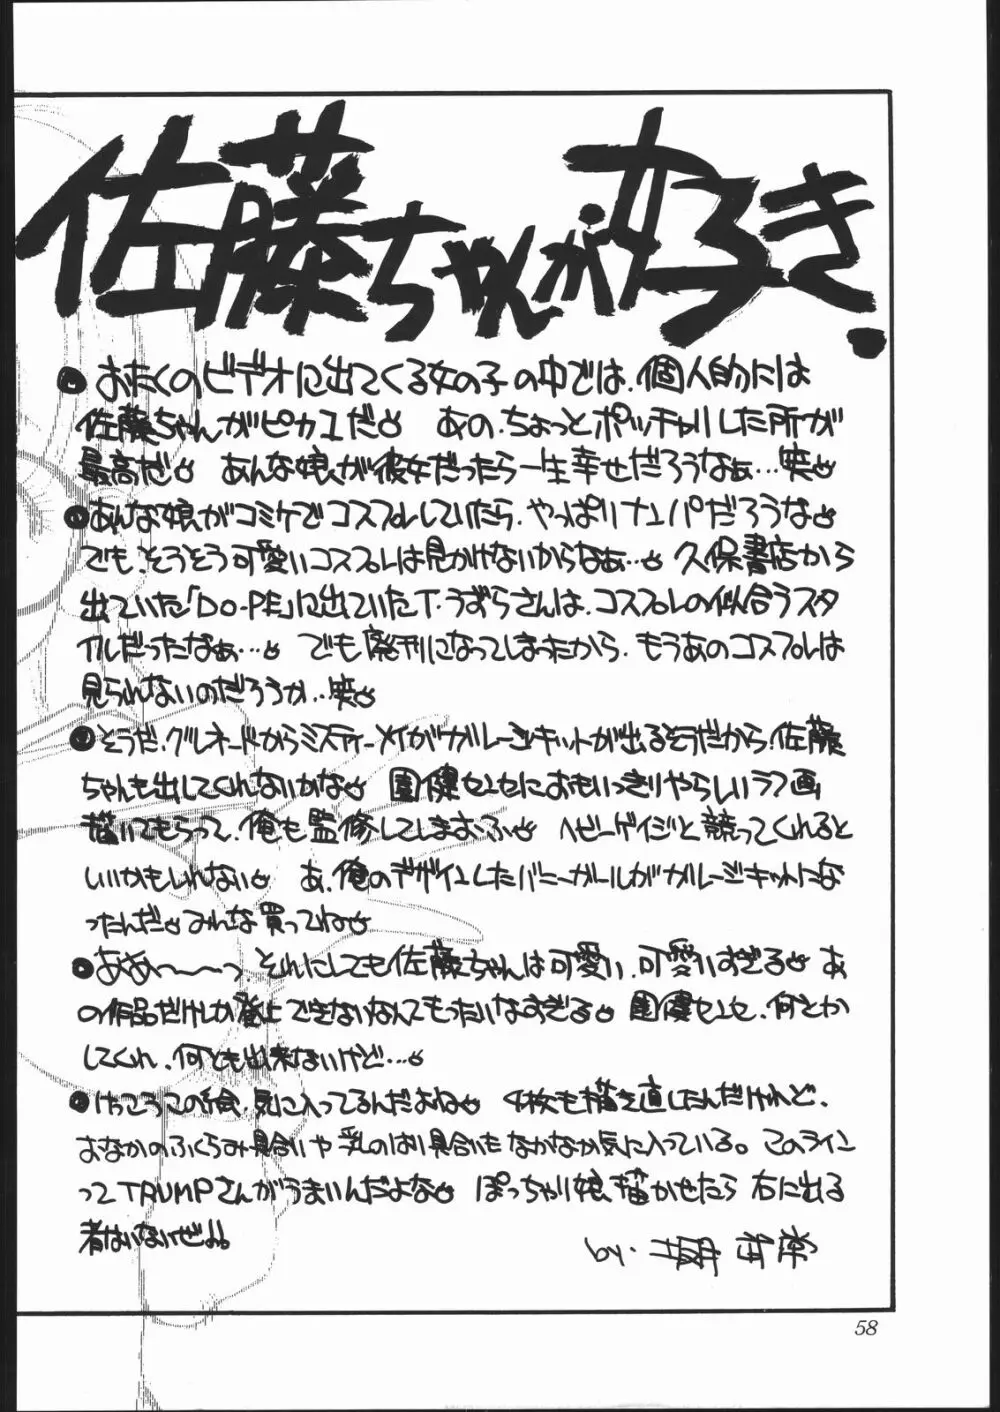 佐藤ちゃんが好き.
おたくのビデオに出てくる女の子の中では、個人的には
佐藤ちゃんがピカ1だ♡ あの、ちょっとポッチャリした所が
最高だ♡ あんな娘が彼女だったら一生幸せだろうなぁ…笑♡
あんな娘がコミケでコスプレしていたら、やっぱりナンパだろうな♡
でも、そうそう可愛いコスプレは見かけないからなぁ…♡ 久保書店から
出ていた「DO-PE」に出ていたT・うずらさんは、コスプレの似合うスタ
イルだったなぁ…♡ でも廃刊になってしまったから、もうあのコスプレは
見られないのだろうか…笑♡
そうだ、グレネードからミスティーメイがガレージキットが出るそうだから、佐藤
ちゃんも出してくれないかな♡ 園健センセにおもいっきりやらしいラフ画
描いてもらって、俺も監修してしまお、ふ♡ ヘビーゲイジと競ってくれると
いいかもしれない♡ あ、俺のデザインしたバニーガールがガレージキットにな
ったんだ♡みんな買ってね♡
ああ〜〜〜っ、それにしても佐藤ちゃんは可愛い、可愛いすぎる♡ あ
の作品だけしか登上できないなんてもったいなすぎる♡ 園健センセ、何とか
してくれ、何とも出来ないけど…♡
けっこうこの絵、気に入ってるんだよね♡ 4枚も描き直したんだけれど、
おなかのふくらみ具合いや乳のはり具合いもなかなか気に入っている。このライン
ってTRUMPさんがうまいんだよな♡ ぽっちゃり娘、描かせたら右に出る
者はいないぜ!!
by.
58